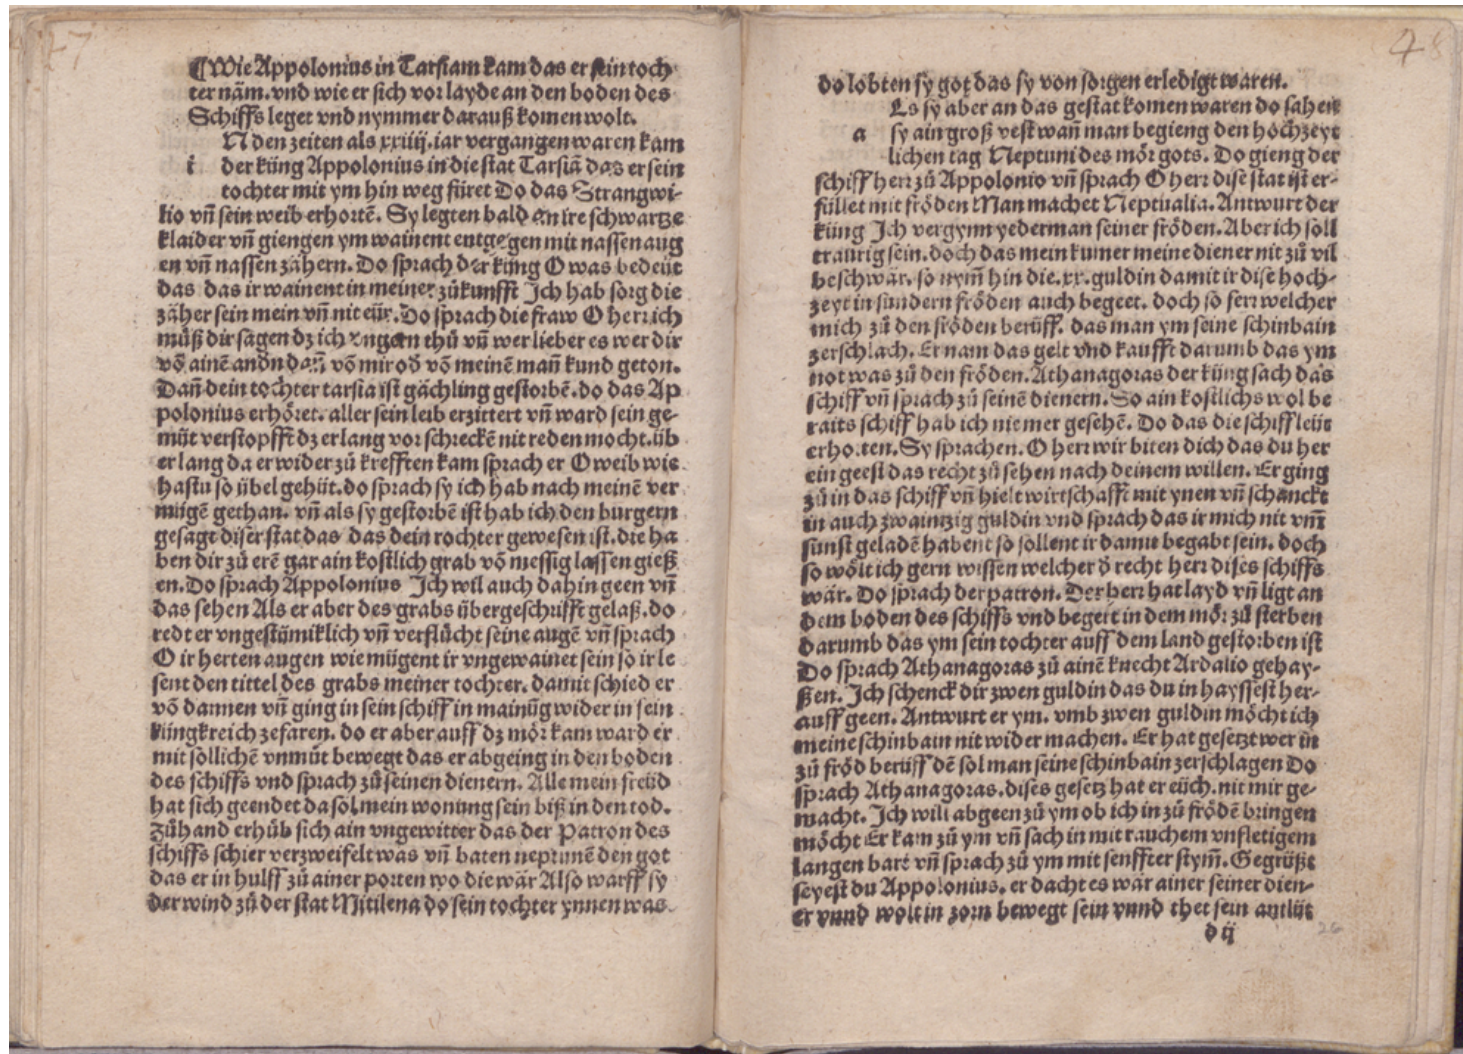 47
¶Wie Appolonius in Tarsiam kam das er sein toch
ter näm. vnd wie er sich vor layde an den boden des
Schiffs leget vnd nymmer darauß komen wolt.
N den zeiten als xxiiij. iar vergangen waren kam
i der küng Appolonius in die stat Tarsiā das er sein
tochter mit ym hin weg füret Do das Strangwi-
lio vn̄ sein weib erhortē. Sy legten bald an ire schwartze
klaider vn̄ giengen ym wainent entgegen mit nassen aug
en vn̄ nassen zähern. Do sprach der küng O was bedeüt
das das ir wainent in meiner zůkunfft Ich hab sorg die
zäher sein mein vn̄ nit eür. Do sprach die fraw O herr ich
můß dir sagen dz ich vngern thů vn̄ wer lieber es wer dir
vō ainē andn dan̄ vō mir od̄ vō meinē man̄ kund geton.
Dan̄ dein tochter tarsia ist gächling gestorbē. do das Ap
polonius erhöret. aller sein leib erzittert vn̄ ward sein ge-
müt verstopfft dz er lang vor schreckē nit reden mocht. üb
er lang da er wider zů krefften kam sprach er O weib wie
hastu so übel gehüt. do sprach sy ich hab nach meinē ver
mügē gethan. vn̄ als sy gestorbē ist hab ich den burgern
gesagt diser stat das das dein tochter gewesen ist. die ha
ben dir zů erē gar ain kostlich grab vō messig lassen gieß
en. Do sprach Appolonius Ich wil auch dahin geen vn̄
das sehen Als er aber des grabs übergeschrifft gelaß. do
redt er vngestümiklich vn̄ verflůcht seine augē vn̄ sprach
O ir herten augen wie mügent ir vngewainet sein so ir le
sent den tittel des grabs meiner tochter. damit schied er
vō dannen vn̄ ging in sein schiff in mainūg wider in sein
küngkreich zefaren. do er aber auff dz mör kam ward er
mit söllichē vnmůt bewegt das er abgeing in den boden
des schiffs vnd sprach zů seinen dienern. Alle mein freüd
hat sich geendet da sol mein wonung sein biß in den tod.
Zůhand erhůb sich ain vngewitter das der Patron des
schiffs schier verzweifelt was vn̄ baten neptunē den got
das er in hulff zů ainer porten wo die wär Also warff sy
der wind zů der stat Mitilena do sein tochter ynnen was
48
do lobten sy got das sy von sorgen erledigt waren.
Ls sy aber an das gestat komen waren do sahen
a sy ain groß vest wan̄ man begieng den hochzeyt
lichen tag Neptuni des mör gots. Do gieng der
schiff herr zů Appolonio vn̄ sprach O herr dise stat ist er-
füllet mit fröden Man machet Neptualia. Antwurt der
küng Ich vergynn yederman seiner fröden. Aber ich soll
traurig sein. doch das mein kumer meine diener nit zů vil
beschwär. so nym̄ hin die. xx. guldin damit ir dise hoch-
zeyt in sundern fröden auch begeet. doch so ferr welcher
mich zů den fröden berüff. das man ym seine schinbain
zerschlach. Er nam das gelt vnd kaufft darumb das ym
not was zů den fröden. Athanagoras der küng sach das
schiff vn̄ sprach zů seinē dienern. So ain kostlichs wol be
raits schiff hab ich nie mer gesehē. Do das die schiff leüt
erhorten. Sy sprachen. O herr wir biten dich das du her
ein geest das recht zů sehen nach deinem willen. Er ging
zů in das schiff vn̄ hielt wirtschafft mit ynen vn̄ schanckt
in auch zwaintzig guldin vnd sprach das ir mich nit vm̄
sunst geladē habent so sollent ir damit begabt sein. doch
so wölt ich gern wissen welcher d̄ recht herr dises schiffs
wär. Do sprach der patron. Der herr hat layd vn̄ ligt an
dem boden des schiffs vnd begert in dem mör zů sterben
darumb das ym sein tochter auff dem land gestorben ist
Do sprach Athanagoras zů ainē knecht Ardalio gehay-
ßen. Ich schenck dir zwen guldin das du in hayssest her-
auff geen. Antwurt er ym. vmb zwen guldin möcht ich
meine schinbain nit wider machen. Er hat gesetzt wer in
zů fröd berüff dē sol man seine schinbain zerschlagen Do
sprach Athanagoras. dises gesetz hat er eüch. nit mir ge-
macht. Ich will abgeen zů ym ob ich in zů frödē bringen
möcht Er kam zů ym vn̄ sach in mit rauchem vnfletigem
langen bart vn̄ sprach zů ym mit senffter stym̄. Gegrüßt
seyest du Appolonius. er dacht es wär ainer seiner dien-
er vnnd wolt in zorn bewegt sein vnnd thet sein antlüt
d ij
26